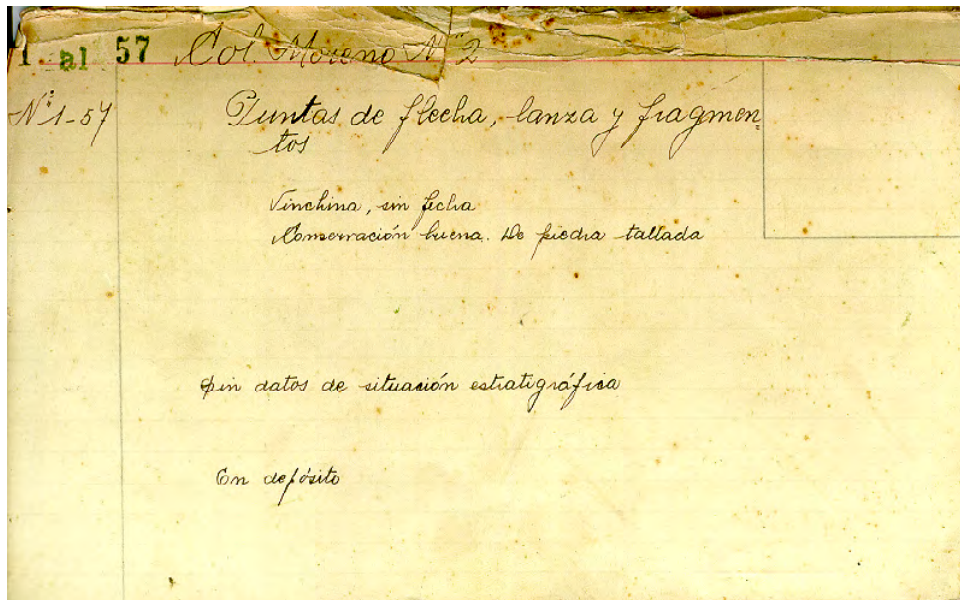 1 al 57 Col. Moreno Nº 2
Nº 1-57
Puntas de flecha, lanza y fragmen-
tos
Vinchina, sin fecha
Conservación buena. De piedra tallada
Sin datos de situación estratigráfica
En depósito